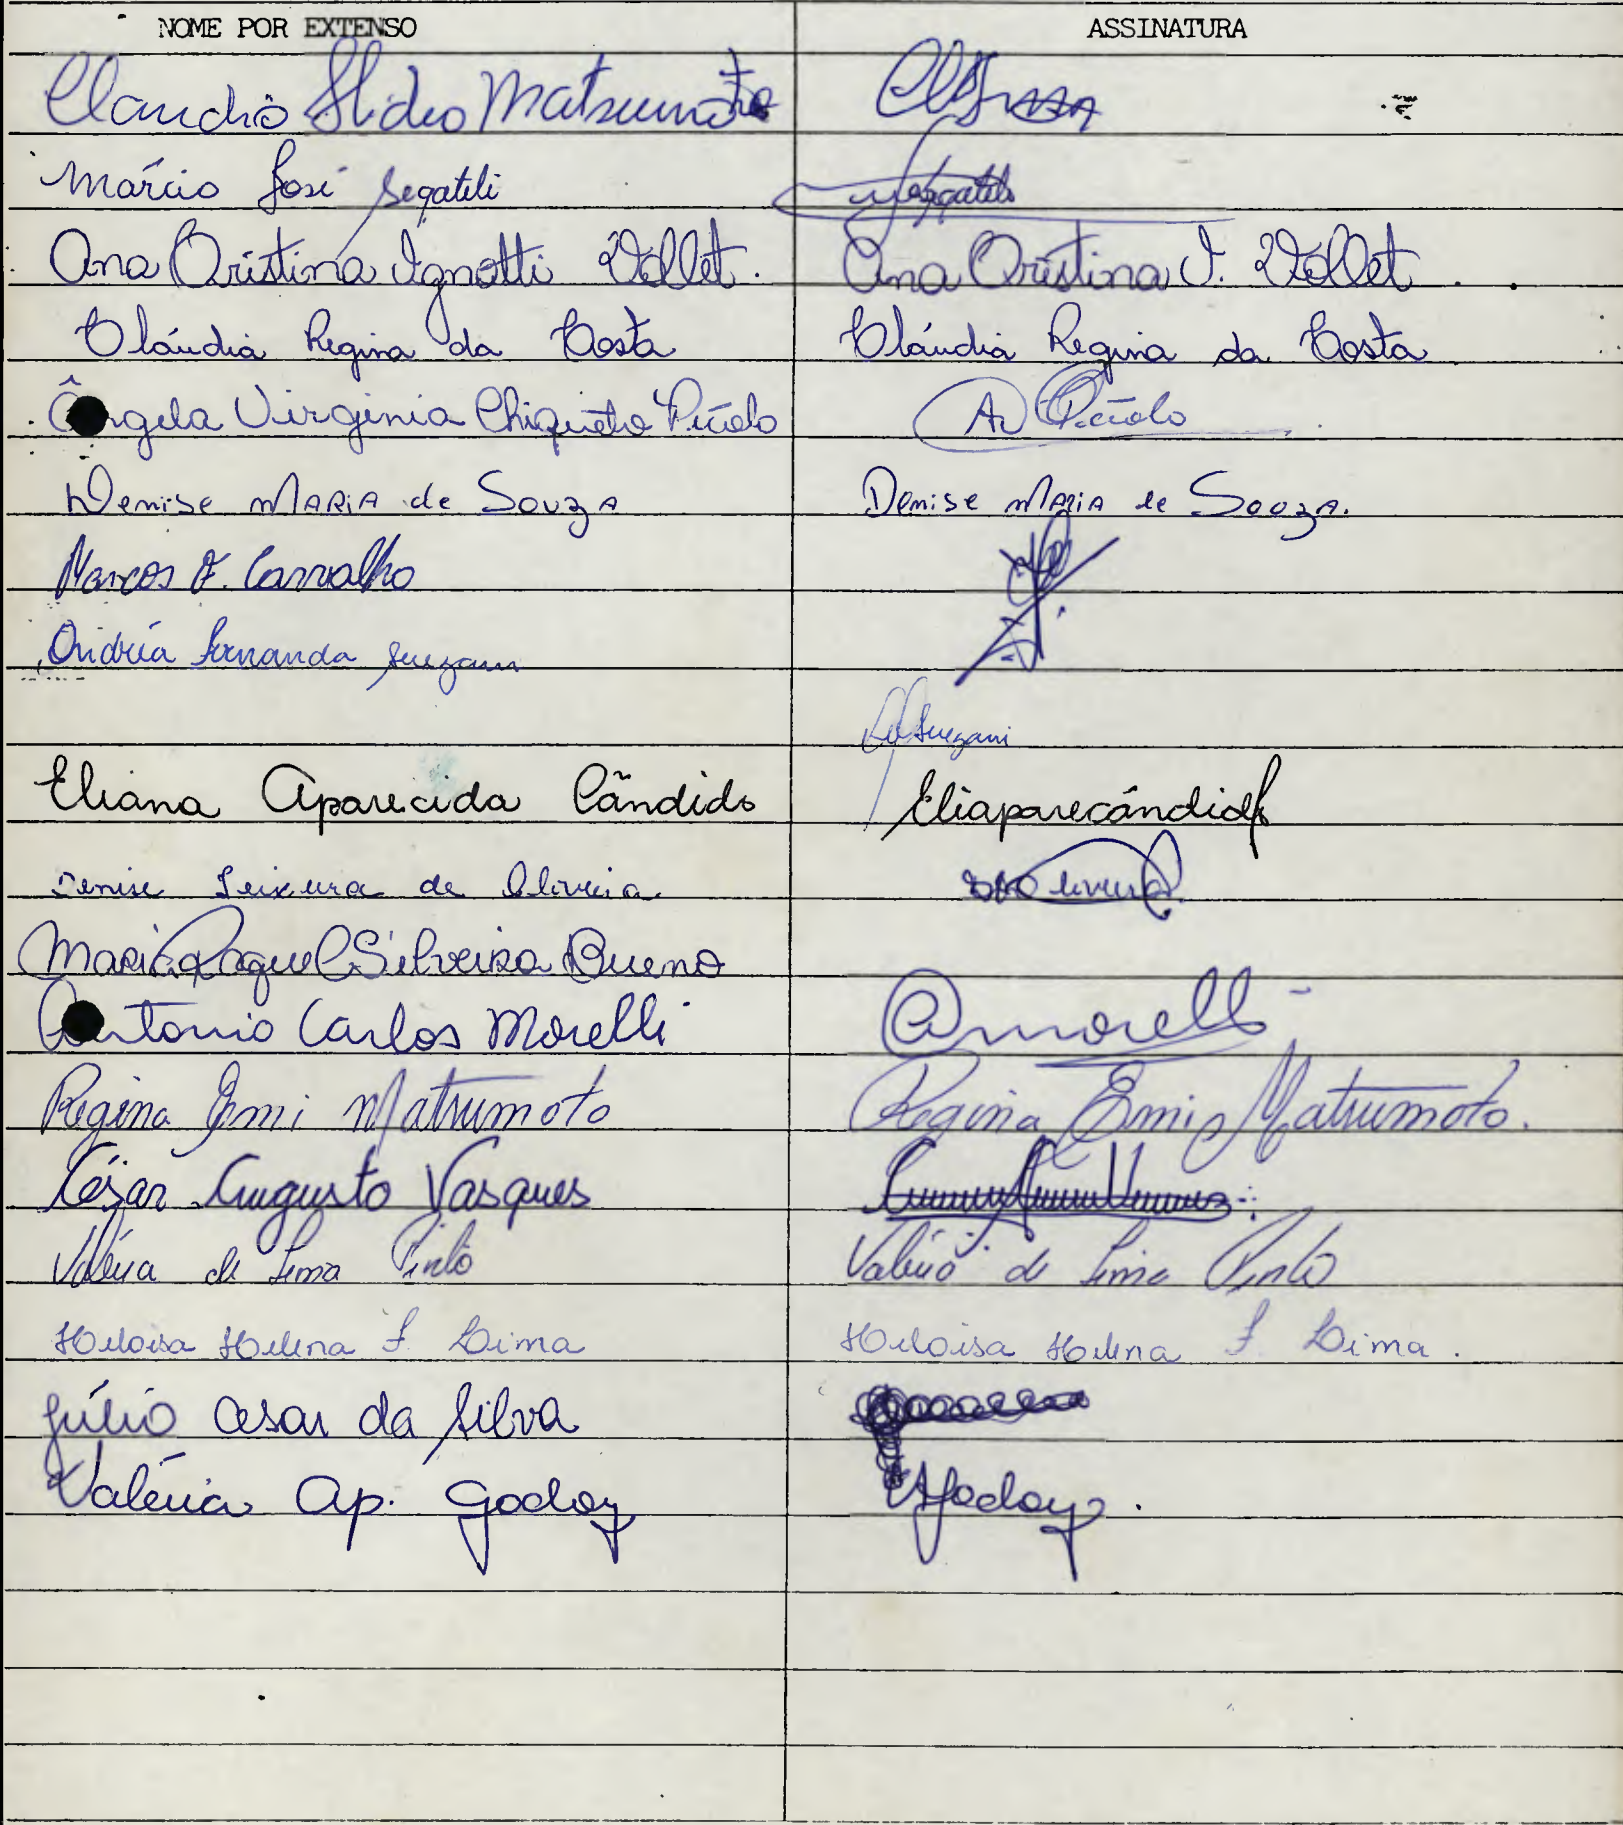 NOME POR EXTENSO ASSINATURA
Claudio Hideo Matsumoto
Márcio José Segateli Segateli
Ana Cristina Ignotti Vollet. Ana Cristina I. Vollet
Cláudia Regina da Costa Cláudia Regina da Costa
Ângela Virginia Chiqueto
Denise MARiA de SouzA Denise MARiA de SouzA.
Marcos F. Carvalho
Andréia Fernanda
Eliana Aparecida Cândido Eliaparecândido
Denise Teixeira de Oliveira. Oliveira
Maria Raquel Silveira Bueno
Antonio Carlos Morelli Amorelli
Regina Emi Matsumoto Regina Emi Matsumoto.
César Augusto Vasques
Valéria de Lima Pinto Valéria de Lima Pinto
Heloisa Helena F. Lima Heloisa Helena F. Lima.
Júlio Cesar da Silva
Valéria Ap. Godoy VGodoy.